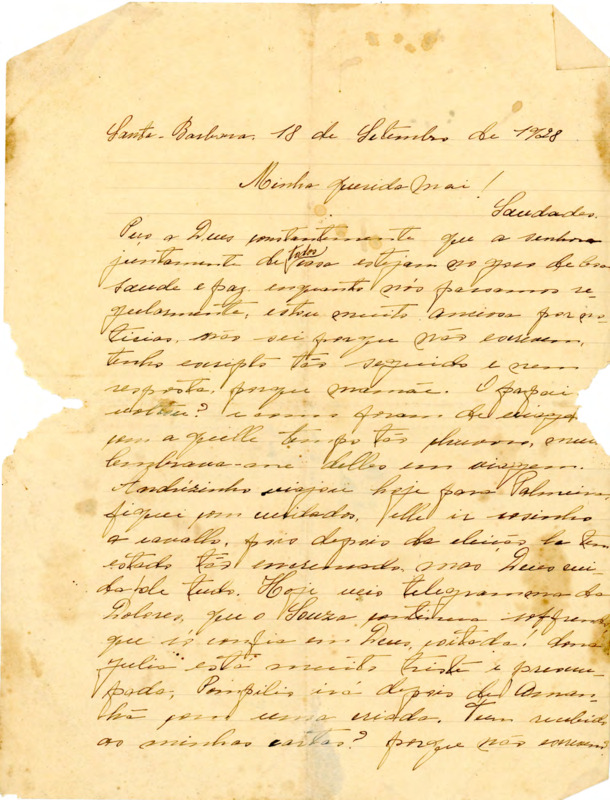 Santa-Barbara. 18 de Setembro de 1928
Minha querida mai!
Saudades.
Peço a Deus constantemente que a senhora
juntamente de todos casa estejam no goso de boa
saude e paz enquanto nós passamos re-
gularmente, estou muito anciosa por no-
ticias, não sei porque não escrevem,
tenho escripto tão seguido e nem
resposta, porque mamãe. O papai
voltou? e como foram de viagem
com aquelle tempo tão chuvoso, eu
lembrava-me delles em viagem.
Andrézinho viajou hoje para Palmeira
fiquei com cuidados, elle ir sosinho
a cavallo, pois depois da eleição, la tem
estado tão, mas Deus cui-
da de tudo. Hoje veio telegramma da
Dolores, que o Souza continua soffrendo
que só confia em Deus, coitada! dona
Julia está muito triste e preocu-
pada, Pompilio irá depois de Aman-
hã com uma criada. Tem recebido
as minhas cartas? porque não escrevem